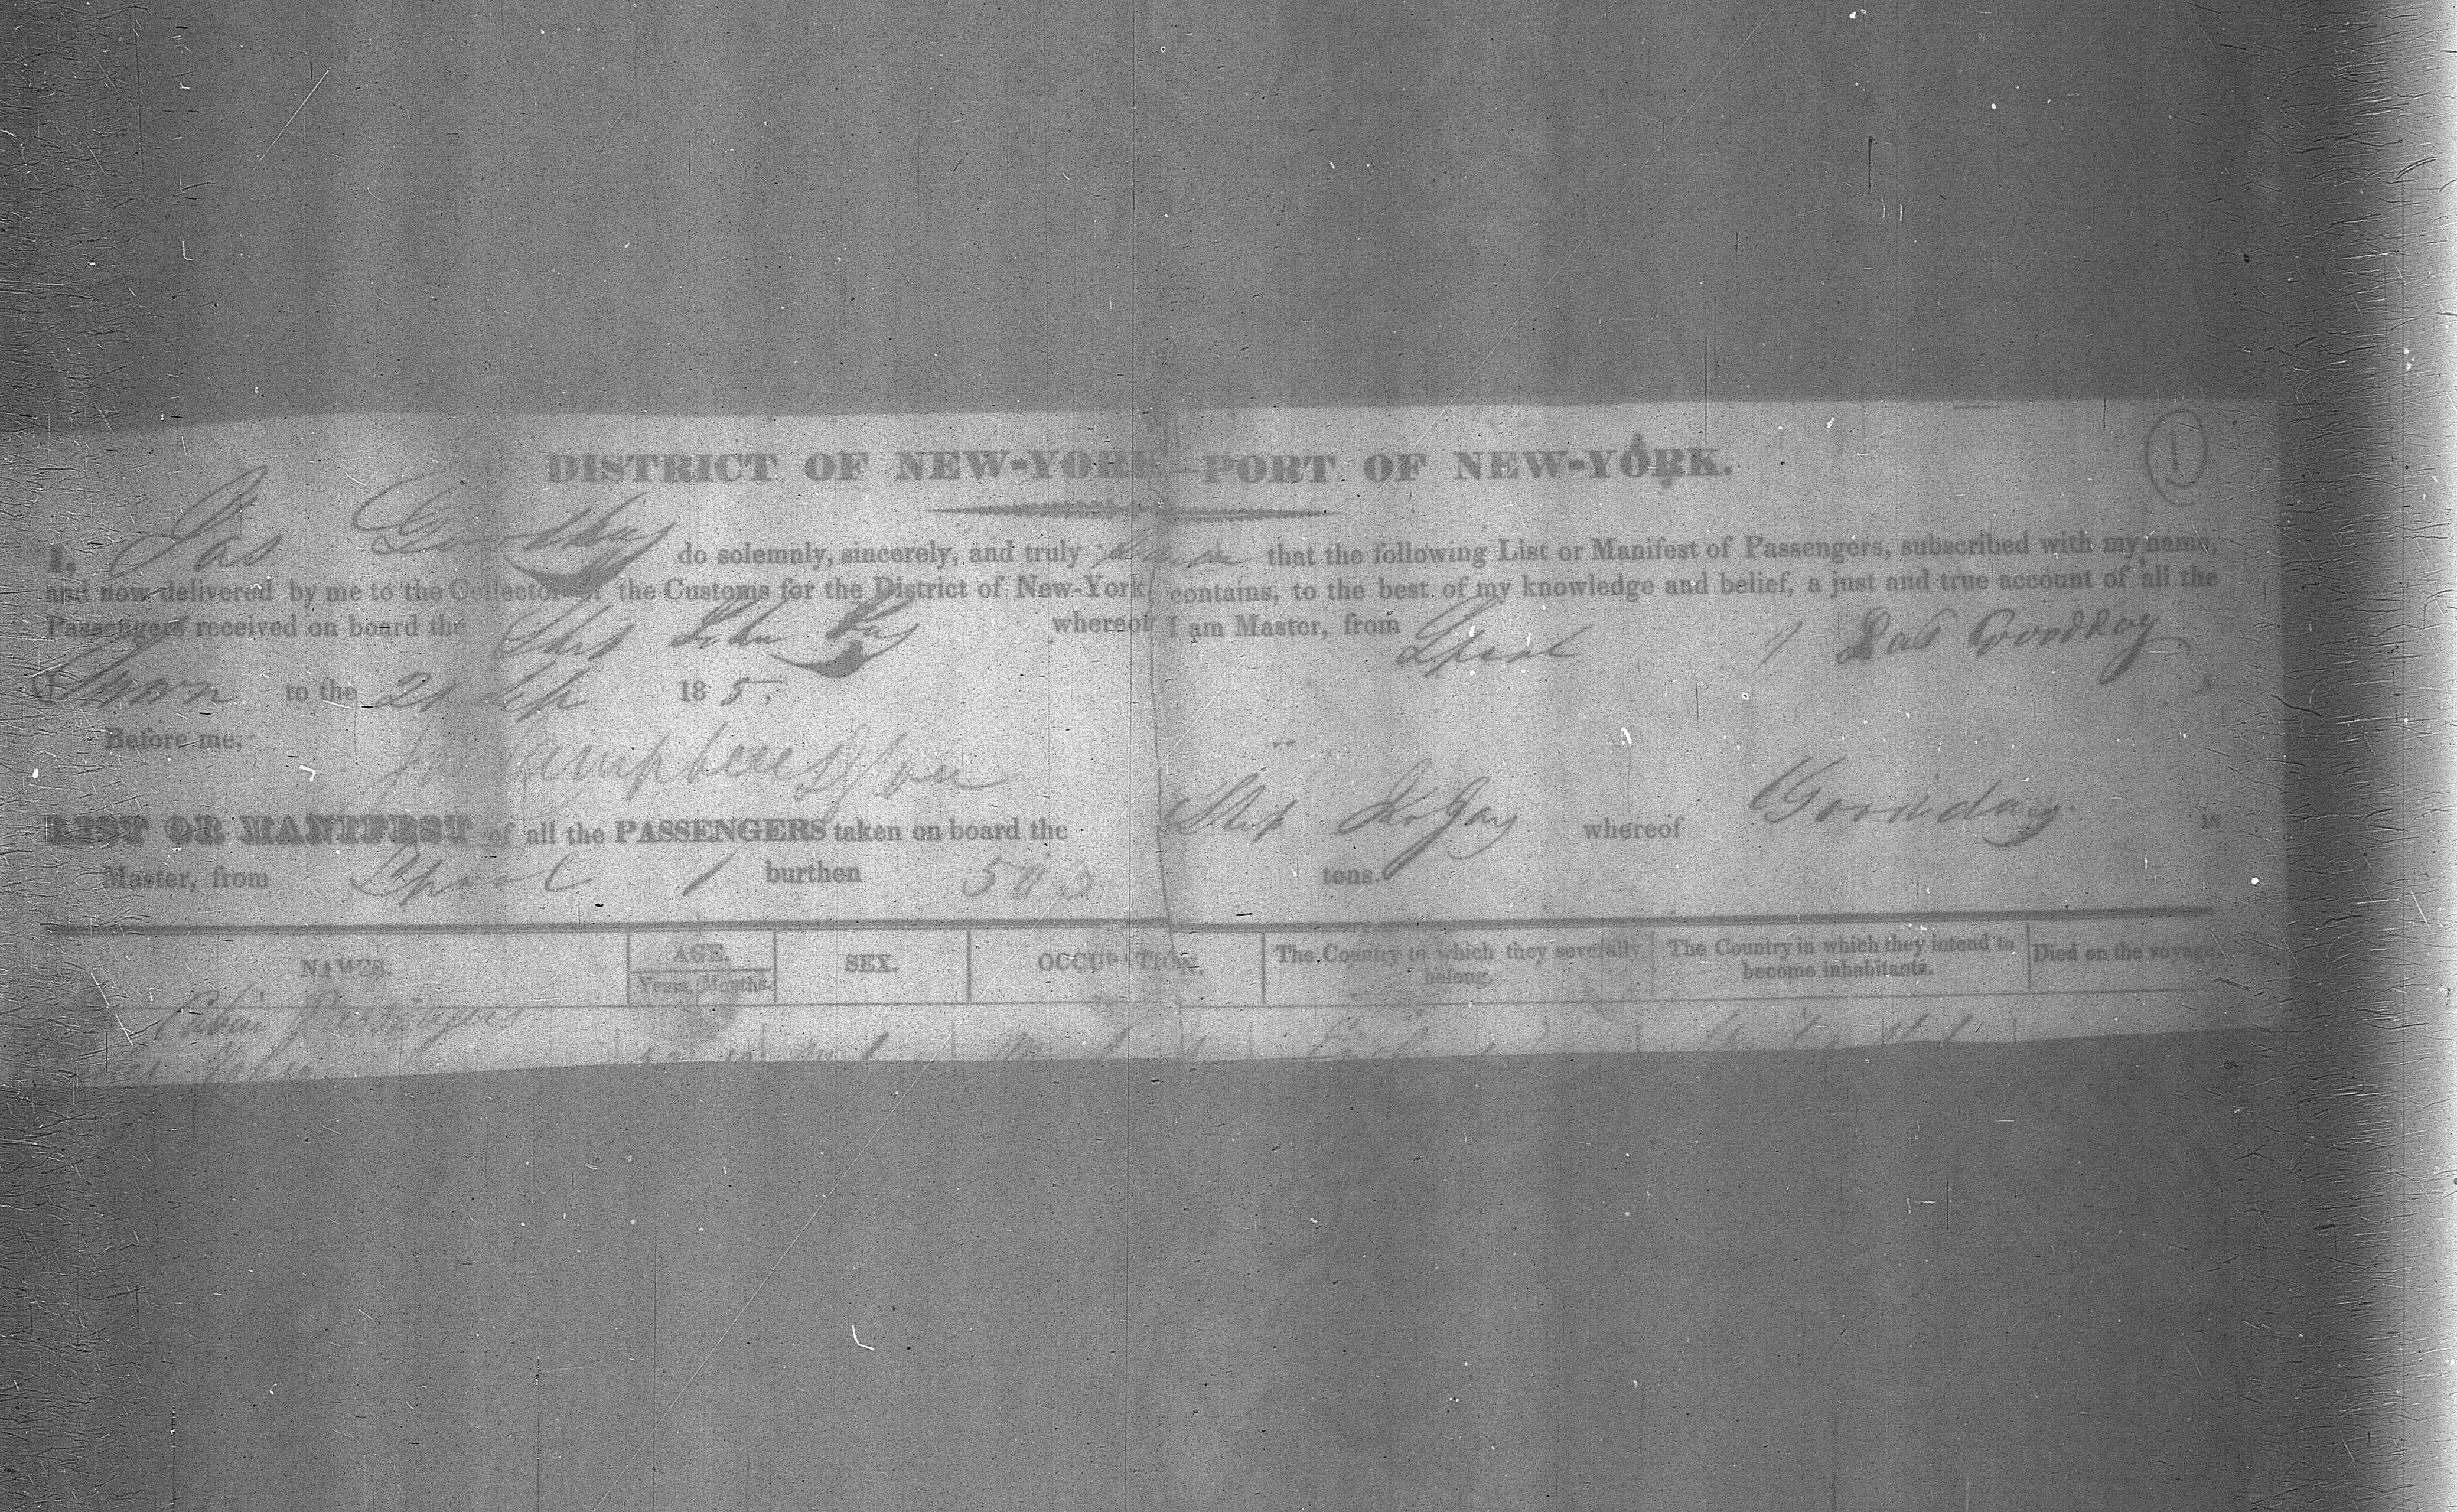 DISTRICT OF NEW-YORK—PORT OF NEW-YORK.
1
I, Jas Goodday do solemnly, sincerely, and truly swear that the following List or Manifest of Passengers, subscribed with my name,
and now delivered by me to the Collector of the Customs for the District of New-York, contains, to the best of my knowledge and belief, a just and true account of all the
Passengers received on board the Ship John Jay whereof I am Master, from Lpool Jas Goodday
Sworn to the 21 Sep 185.
Before me,
LIST OR MANIFEST of all the PASSENGERS taken on board the Ship Jno Jay whereof Goodday is
Master, from Lpool burthen 500 tons.
NAMES. AGE. SEX. OCCUPATION. The Country to which they severally belong. The Country in which they intend to become inhabitants. Died on the voyage.
Years. Months.
Cabin Passengers